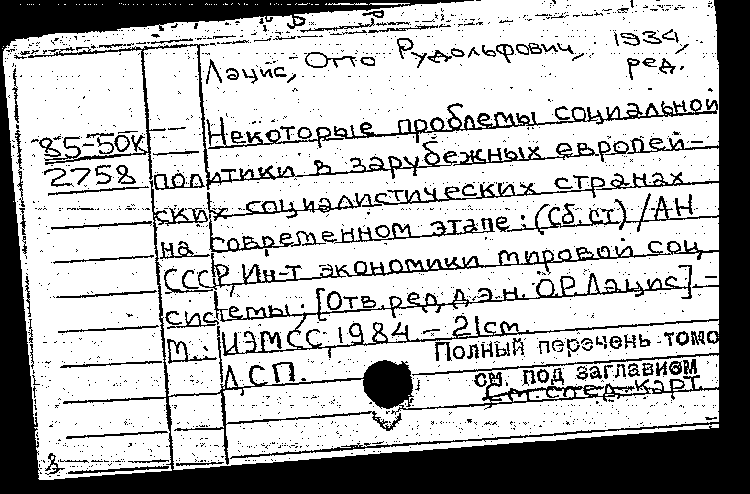 Лацис, Отто Рудольфович, 1934,
ред.
85-50к
2758
Некоторые проблемы социальной
политики в зарубежных европей-
ских социалистических странах
на современном этапе: (Сб. ст) / АН
СССР, Ин-т экономики мировой соц.
системы; [Отв. ред. д.э.н. О.Р. Лацис]. -
М.: ИЭМСС, 1984. - 21см.
ДСП.
Полный перечень томо
см. под заглавием
См. след. карт.
8